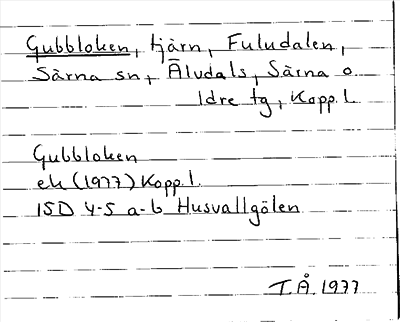 Gubbloken, tjärn, Fuludalen,
Särna sn, Älvdals, Särna o
Idre tg, Kopp. l.
Gubbloken
ek (1977) Kopp. l.
15D 4-5 a-b Husvallgölen
T.Å. 1977